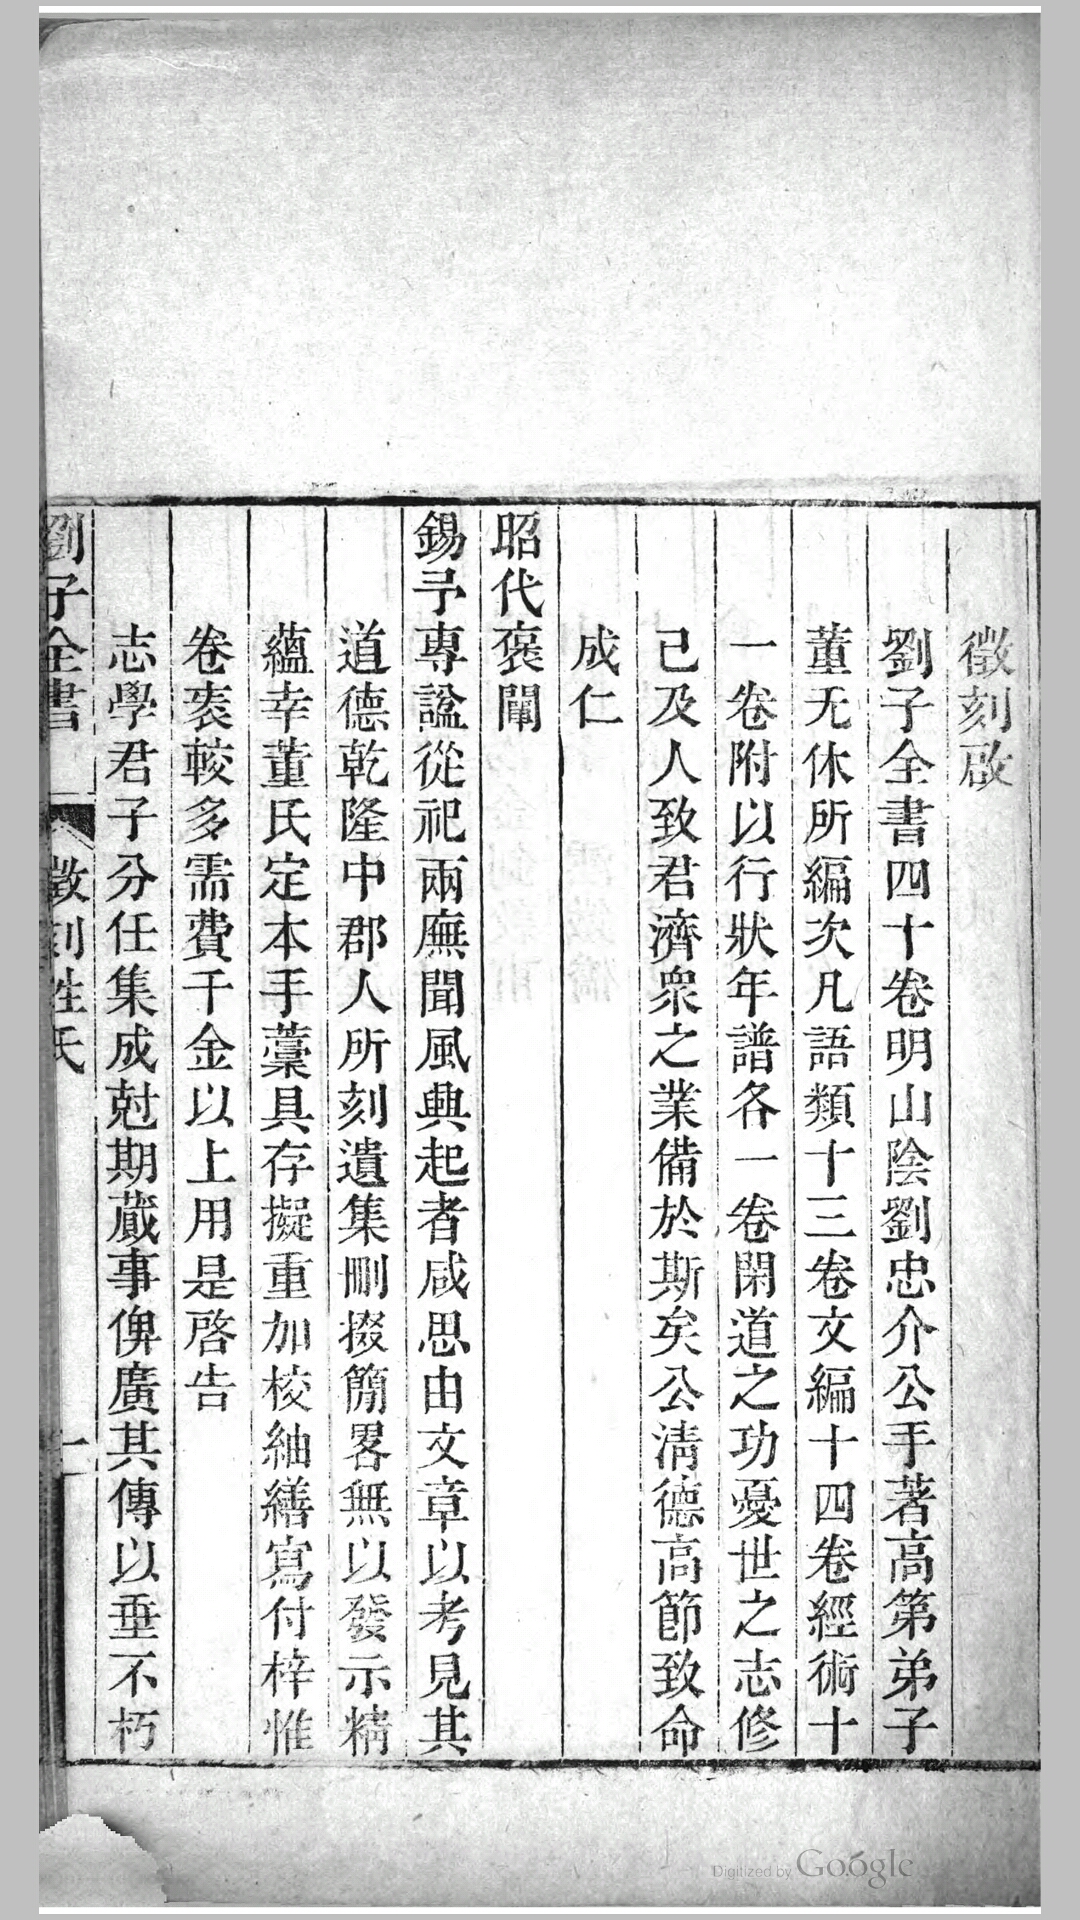 徵刻啟
劉子全書四十卷明山陰劉忠介公手著高第弟子
董无休所編次凡語類十三卷文編十四卷經術十
一卷附以行狀年譜各一卷閑道之功憂世之志修
己及人致君濟衆之業備於斯矣公清德高節致命
成仁
昭代褒闡
錫予專諡從祀兩廡聞風興起者咸思由文章以考見其
道德乾隆中郡人所刻遺集刪掇簡畧無以發示精
蘊幸董氏定本手藁具存擬重加校紬繕寫付梓惟
卷袠較多需費千金以上用是啓告
志學君子分任集成尅期蕆事俾廣其傳以垂不朽
劉子全書 徵刻姓氏 一
Digitized by Google